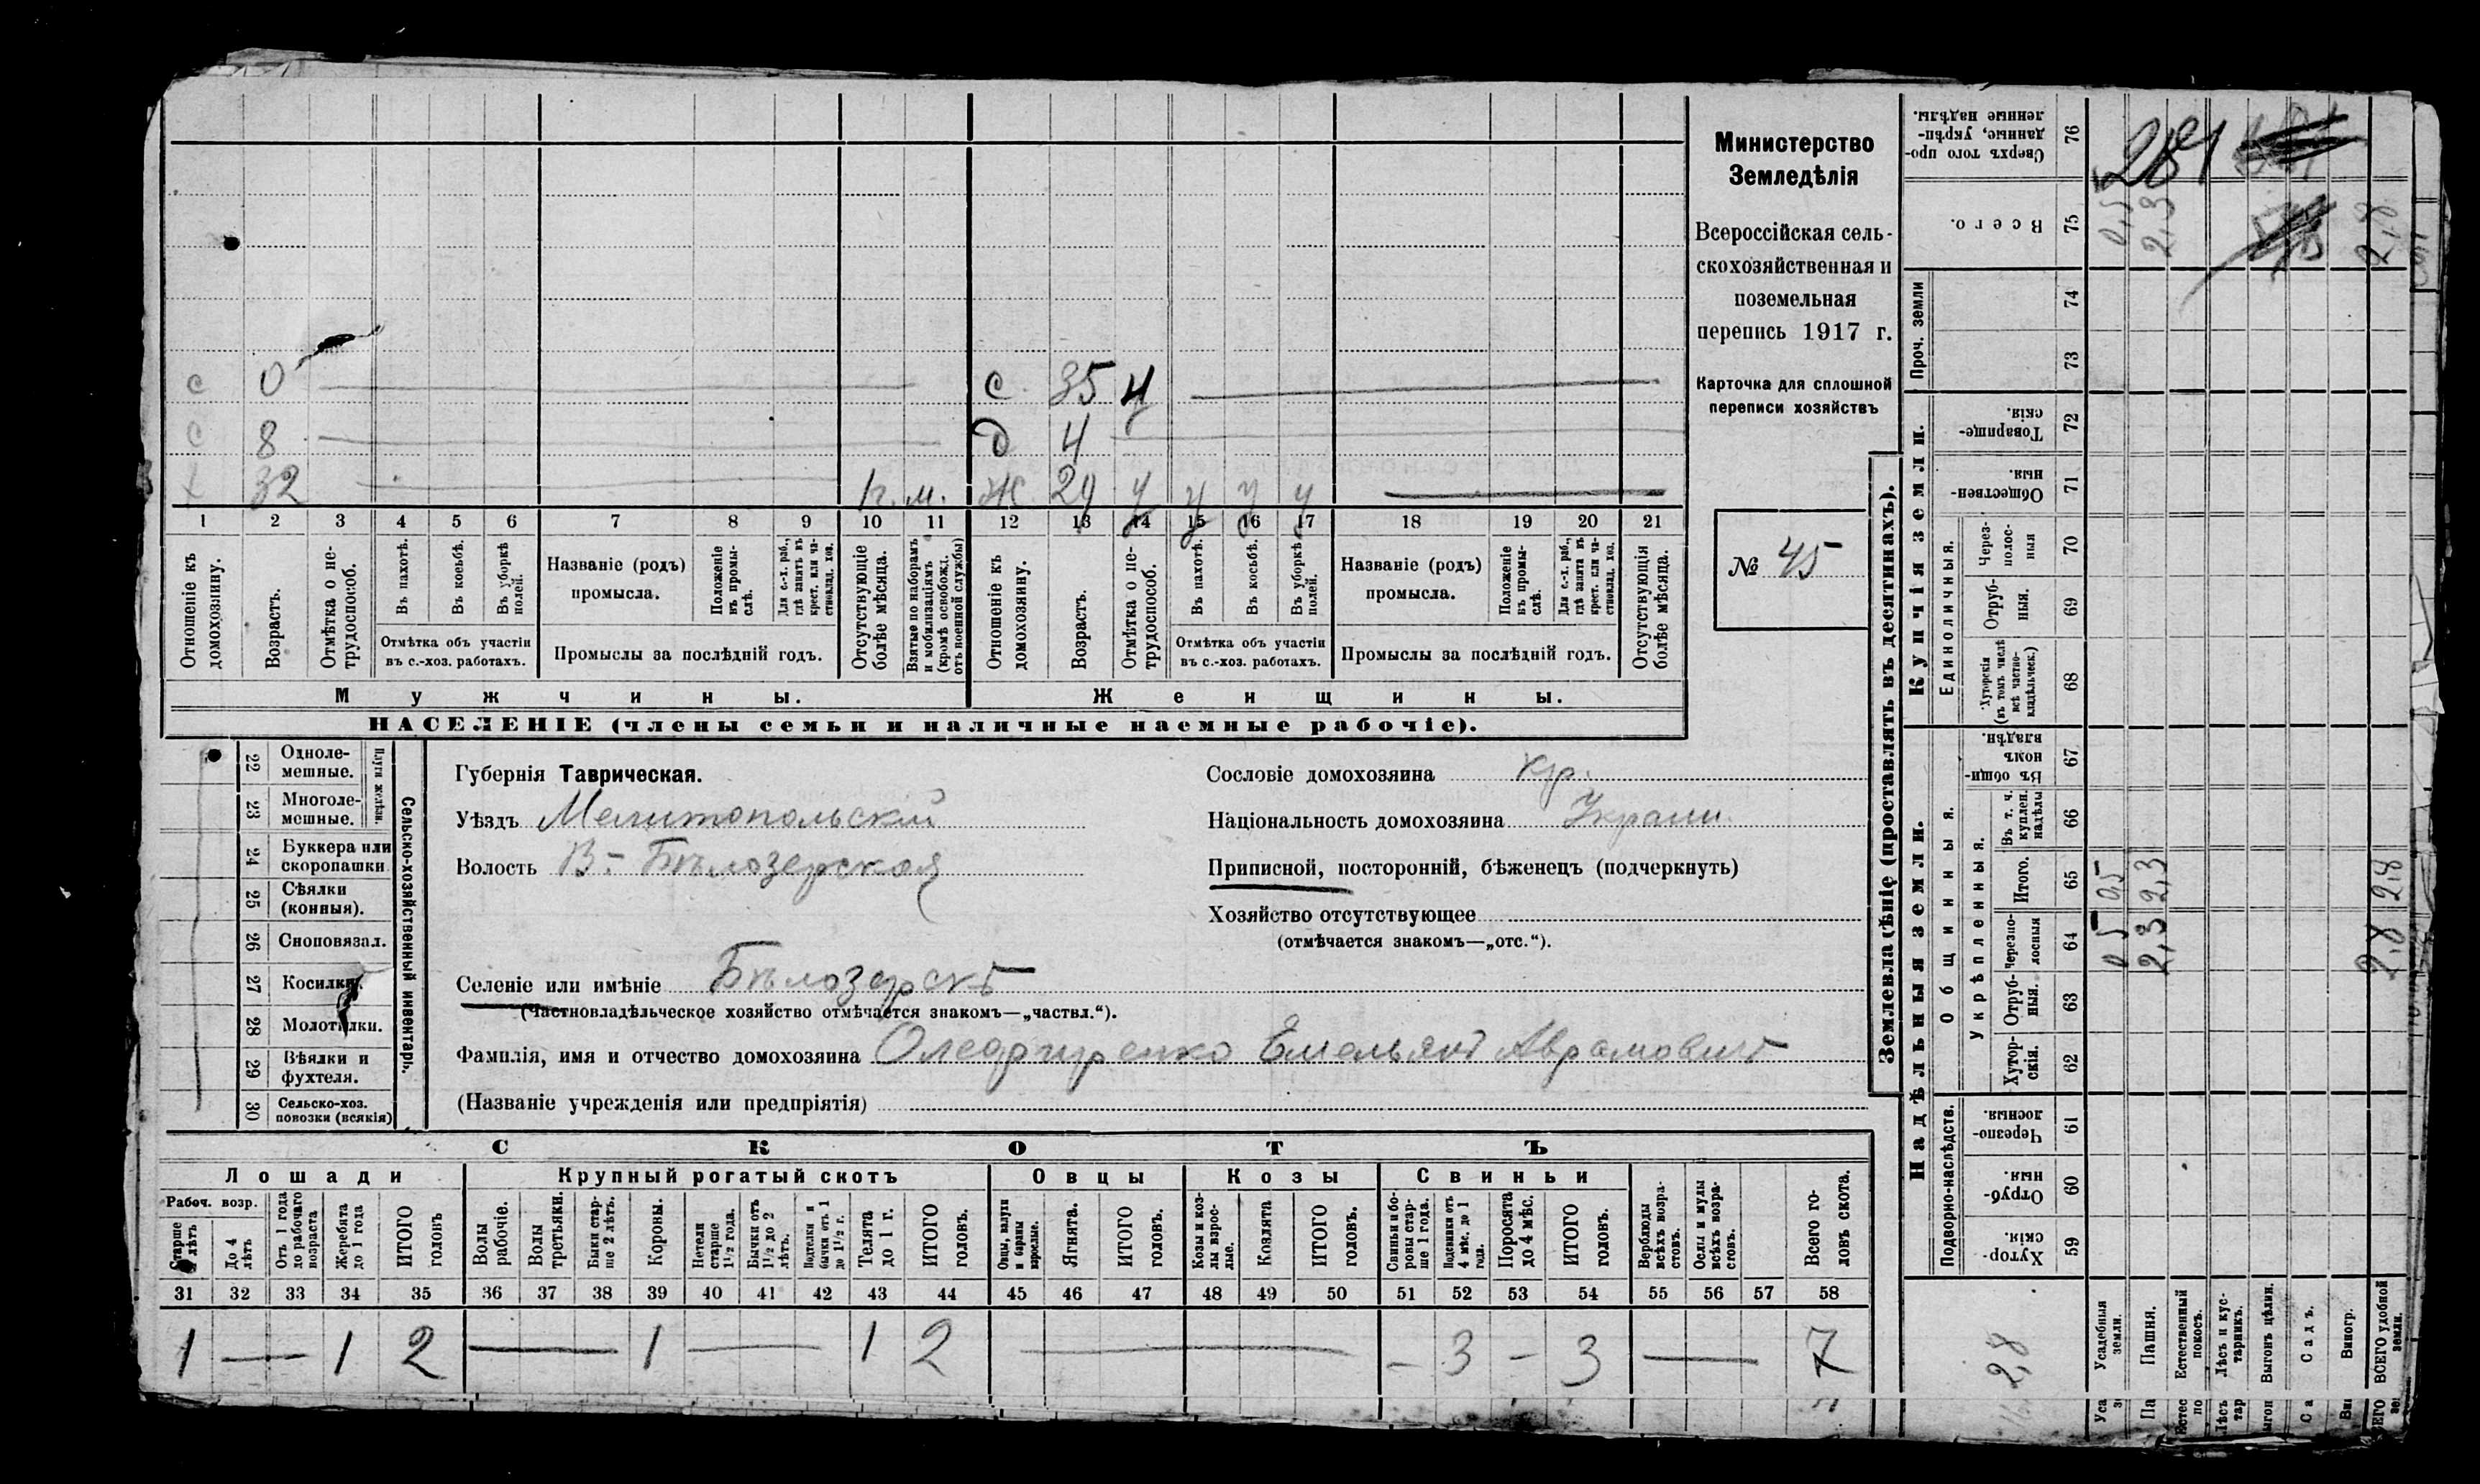 с 0 с 35 у
с 8 д 4
х 32 1 г. м. Ж 29 у у у у
1 2 3 4 5 6 7 8 9 10 11 12 13 14 15 16 17 18 19 20 21
Отношеніе къ домохозяину.
Возрастъ.
Отмѣтка о нетрудоспособ.
Въ пахотѣ.
Въ косьбѣ.
Въ уборкѣ полей.
Отмѣтка объ участіи въ с.-хоз. работахъ.
Названіе (родъ) промысла.
Положеніе въ промыслѣ.
Для с.-х. раб., гдѣ занятъ въ крест. или частновлад. хоз.
Промыслы за послѣдній годъ.
Отсутствующіе болѣе мѣсяца.
Взятые по наборамъ и мобилизаціямъ (кромѣ освобожд. отъ военной службы)
Отношеніе къ домохозяину.
Возрастъ.
Отмѣтка о нетрудоспособ.
Въ пахотѣ.
Въ косьбѣ.
Въ уборкѣ полей.
Отмѣтка объ участіи въ с.-хоз. работахъ.
Названіе (родъ) промысла.
Положеніе въ промыслѣ.
Для с.-х. раб., гдѣ занята въ крест. или частновлад. хоз.
Промыслы за послѣдній годъ.
Отсутствующія болѣе мѣсяца.
Мужчины.
Женщины.
НАСЕЛЕНІЕ (члены семьи и наличные наемные рабочіе).
Министерство
Земледѣлія
Всероссійская сель-
скохозяйственная и
поземельная
перепись 1917 г.
Карточка для сплошной
переписи хозяйствъ
№ 45
22 Однолемешные.
23 Многолемешные.
Плуги желѣзн.
24 Буккера или скоропашки
25 Сѣялки (конныя).
26 Сноповязал.
27 Косилки.
28 Молотилки.
29 Вѣялки и фухтеля.
30 Сельско-хоз. повозки (всякія)
Сельско-хозяйственный инвентарь.
Губернія Таврическая.
Уѣздъ Мелитопольскій
Волость В- Бѣлозерская
Селеніе или имѣніе Бѣлозерскѣ
(Частновладѣльческое хозяйство отмѣчается знакомъ—„частвл.“).
Фамилія, имя и отчество домохозяина Емельянъ Аврамовичъ
(Названіе учрежденія или предпріятія)
Сословіе домохозяина кр.
Національность домохозяина Украин.
Приписной, посторонній, бѣженецъ (подчеркнуть)
Хозяйство отсутствующее
(отмѣчается знакомъ—„отс.“).
СКОТЪ
Лошади
Крупный рогатый скотъ
Овцы
Козы
Свиньи
Рабоч. возр.
Старше 4 лѣтъ
До 4 лѣтъ
Отъ 1 года до рабочаго возраста
Жеребята до 1 года
ИТОГО головъ
Волы рабочіе.
Волы третьяки.
Быки старше 2 лѣтъ.
Коровы.
Нетели старше 1½ года.
Бычки отъ 1½ до 2 лѣтъ.
Подтелки и бычки отъ 1 до 1½ г.
Телята до 1 г.
ИТОГО головъ.
Овцы, валухи и бараны взрослые.
Ягнята.
ИТОГО головъ.
Козы и козлы взрослые.
Козлята
ИТОГО головъ.
Свиньи и боровы старше 1 года.
Подсвинки отъ 4 мѣс. до 1 года.
Поросята до 4 мѣс.
ИТОГО головъ.
Верблюды всѣхъ возрастовъ.
Ослы и мулы всѣхъ возрастовъ.
Всего головъ скота.
31 32 33 34 35 36 37 38 39 40 41 42 43 44 45 46 47 48 49 50 51 52 53 54 55 56 57 58
1 — 1 2 — 1 — 1 2 — - 3 - 3 — 7
Землевладѣніе (проставлять въ десятинахъ).
Купчія земли.
Надѣльныя земли.
Сверхъ того проданные, укрѣпленные надѣлы. 76
Всего. 75
Проч. земли 74 73
Товарищескія. 72
Общественныя 71
Единоличныя.
Черезполосныя 70
Отрубныя. 69
Хуторскія (въ томъ числѣ всѣ частновладѣльческ.) 68
Общинныя.
Въ общинномъ владѣн. 67
Укрѣпленныя.
Въ т. ч. куплен. надѣлы 66
Итого. 65
Черезполосныя 64
Отрубныя. 63
Хуторскія. 62
Подворно-наслѣдств.
Черезполосныя. 61
Отрубныя. 60
Хуторскія. 59
281
0,5 2,3 2,8
0,5 2,3 2,8
0,5 2,3 2,8
2,8
Усадебныя земли.
Пашня.
Естественный покосъ.
Лѣсъ и кустарникъ.
Выгонъ цѣлин.
Садъ.
Виногр.
ВСЕГО удобной земли.